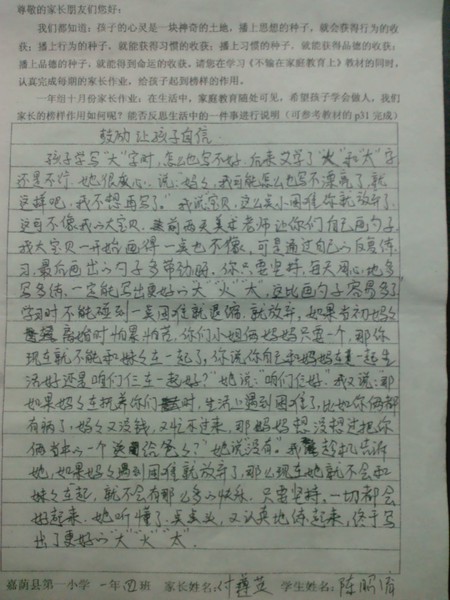 尊敬的家长朋友们您好:
我们都知道:孩子的心灵是一块神奇的土地,播上思想的种子,就会获得行为的收
获;播上行为的种子,就能获得习惯的收获;播上习惯的种子,就能获得品德的收获;
播上品德的种子,就能得到命运的收获,请您在学习《不输在家庭教育上》教材的同时,
认真完成每期的家长作业,给孩子起到榜样的作用。
一年组十月份家长作业,在生活中,家庭教育随处可见,希望孩子学会做人,我们
家长的榜样作用如何呢?能否反思生活中的一件事进行说明(可参考教材的 p31 完成)
鼓励让孩子自信
孩子学写"大"字时,怎么也写不好,后来又学了"火"和"太"字
还是不行。她很灰心,说:"妈妈,我可能怎么也写不漂亮了,就
这样吧,我不想再写了。"我说宝贝,这么点小困难你就放弃了,
这可不像我的大宝贝。前两天美术老师让你们自己画勺子,
我大宝贝一开始画得一点也不像,可是通过自己的反复练
习,最后画出的勺子多带劲呀,你只要坚持,每天用心地多
写多练,一定能写出更好的"大""火""太",这比画勺子容易多了
学习时不能碰到一点困难就退缩,就放弃,如果当初妈妈
离婚时怕累怕苦,你们小姐俩妈妈只要一个,那你
现在就不能和妹妹在一起了,你说你自己和妈妈在一起生
活好还是咱们仨在一起好?"她说:"咱们仨好"我又说:"那
如果妈妈在抚养你们时,生活上遇到困难了,比如你俩都
有病了,妈妈又没钱,又忙不过来,那妈妈想没想过把你
俩当中的一个送给爸爸?"她说"没有"。我趁机告诉
她,如果妈妈遇到困难就放弃了,那么现在她就不会和
妹妹在一起,就不会有那么多的快乐,只要坚持,一切都会
好起来,她听懂了,点点头,又认真地练起来,终于写
出了更好的"大""火""太"。
嘉荫县第一小学 一年四班 家长姓名:付 英 学生姓名:陈